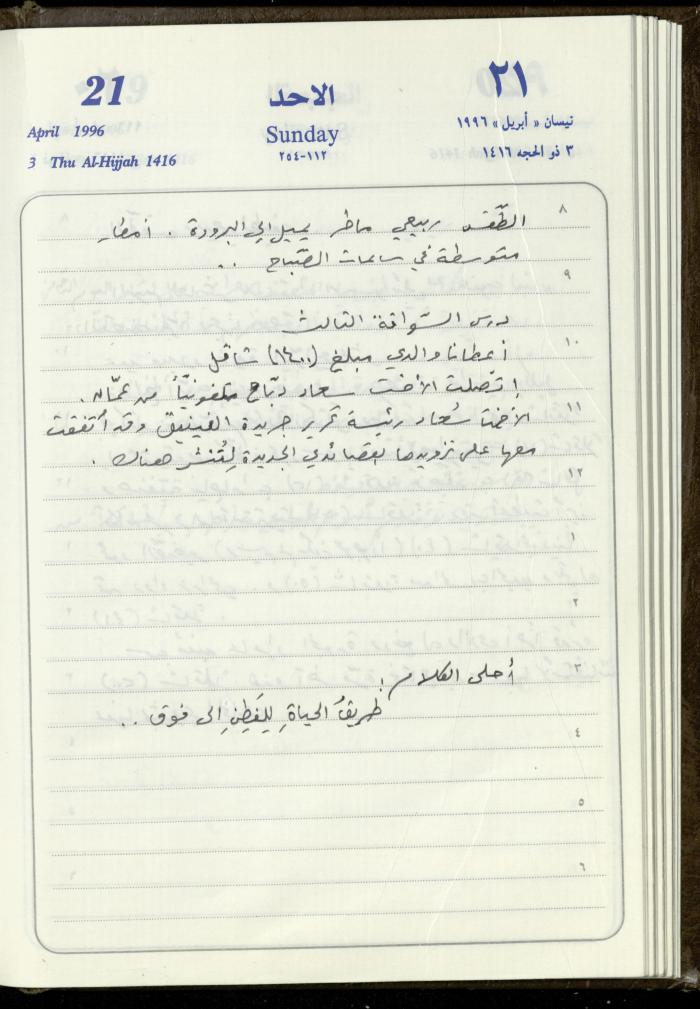 21
April 1996
3 Thu Al-Hijjah 1416
الاحد
Sunday
٢٥٤-١١٢
٢١
نيسان « أبريل » ١٩٩٦
٣ ذو الحجه ١٤١٦
٨
الطّقس ربيعي ماطر يميل إلى البرودة . أمطار
متوسطة في ساعات الصّباح ..
٩
درس السّواقة الثالث
١٠
أعطانا والدي مبلغ (١٤٠٠) شاقل
اتّصلت الأخت سعاد دبّاح تلفونيّاً من عمّان .
١١
الأخت سُعاد رئيسة تحرير جريدة الفينيق وقد اتفقت
معها على تزويدها بقصائدي الجديدة لِتُنشر هناك .
١٢
١
٢
٣
أحلى الكلام :
طريقُ الحياةِ لِلفَطِنِ إلى فوق ..
٤
٥
٦